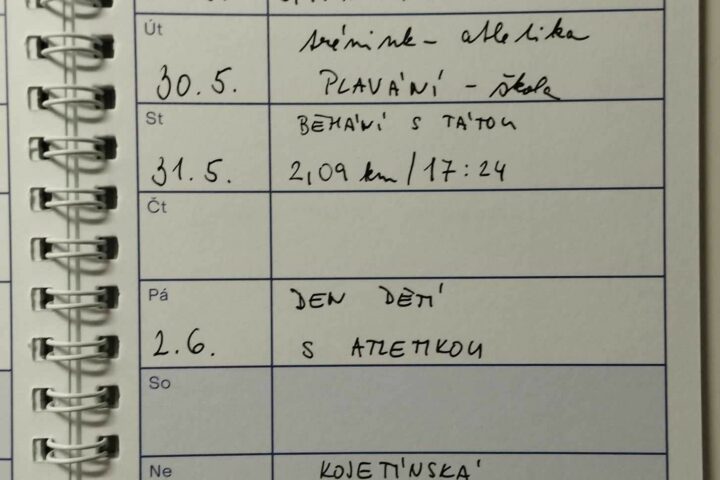 Út
trénink - atletika
30.5. PLAVÁNÍ - škola
St
BĚHÁNÍ S TÁTOU
31.5. 2,09 km/17:24
Čt
Pá
DEN DĚTÍ
2.6. S ATLETIKOU
So
Ne
KOJETÍNSKÁ